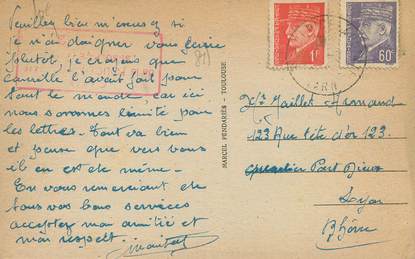 Veuillez bien m'excuser si
je n'ai daigner vous écrire
plutot, je croyais que
camille l'avait fait pour
tout le monde, car ici
nous sommes limité pour
les lettres. Tout va bien
et pense que vers vous
il en est de même.
En vous remerciant de
tous vos bons services
acceptez mon amitié et
mon respect.
MARCEL PENDARIÈS - TOULOUSE
1F
60c
Maillet Armand
123 Rue tête d'or 123
Part Dieu
Lyon
Rhône